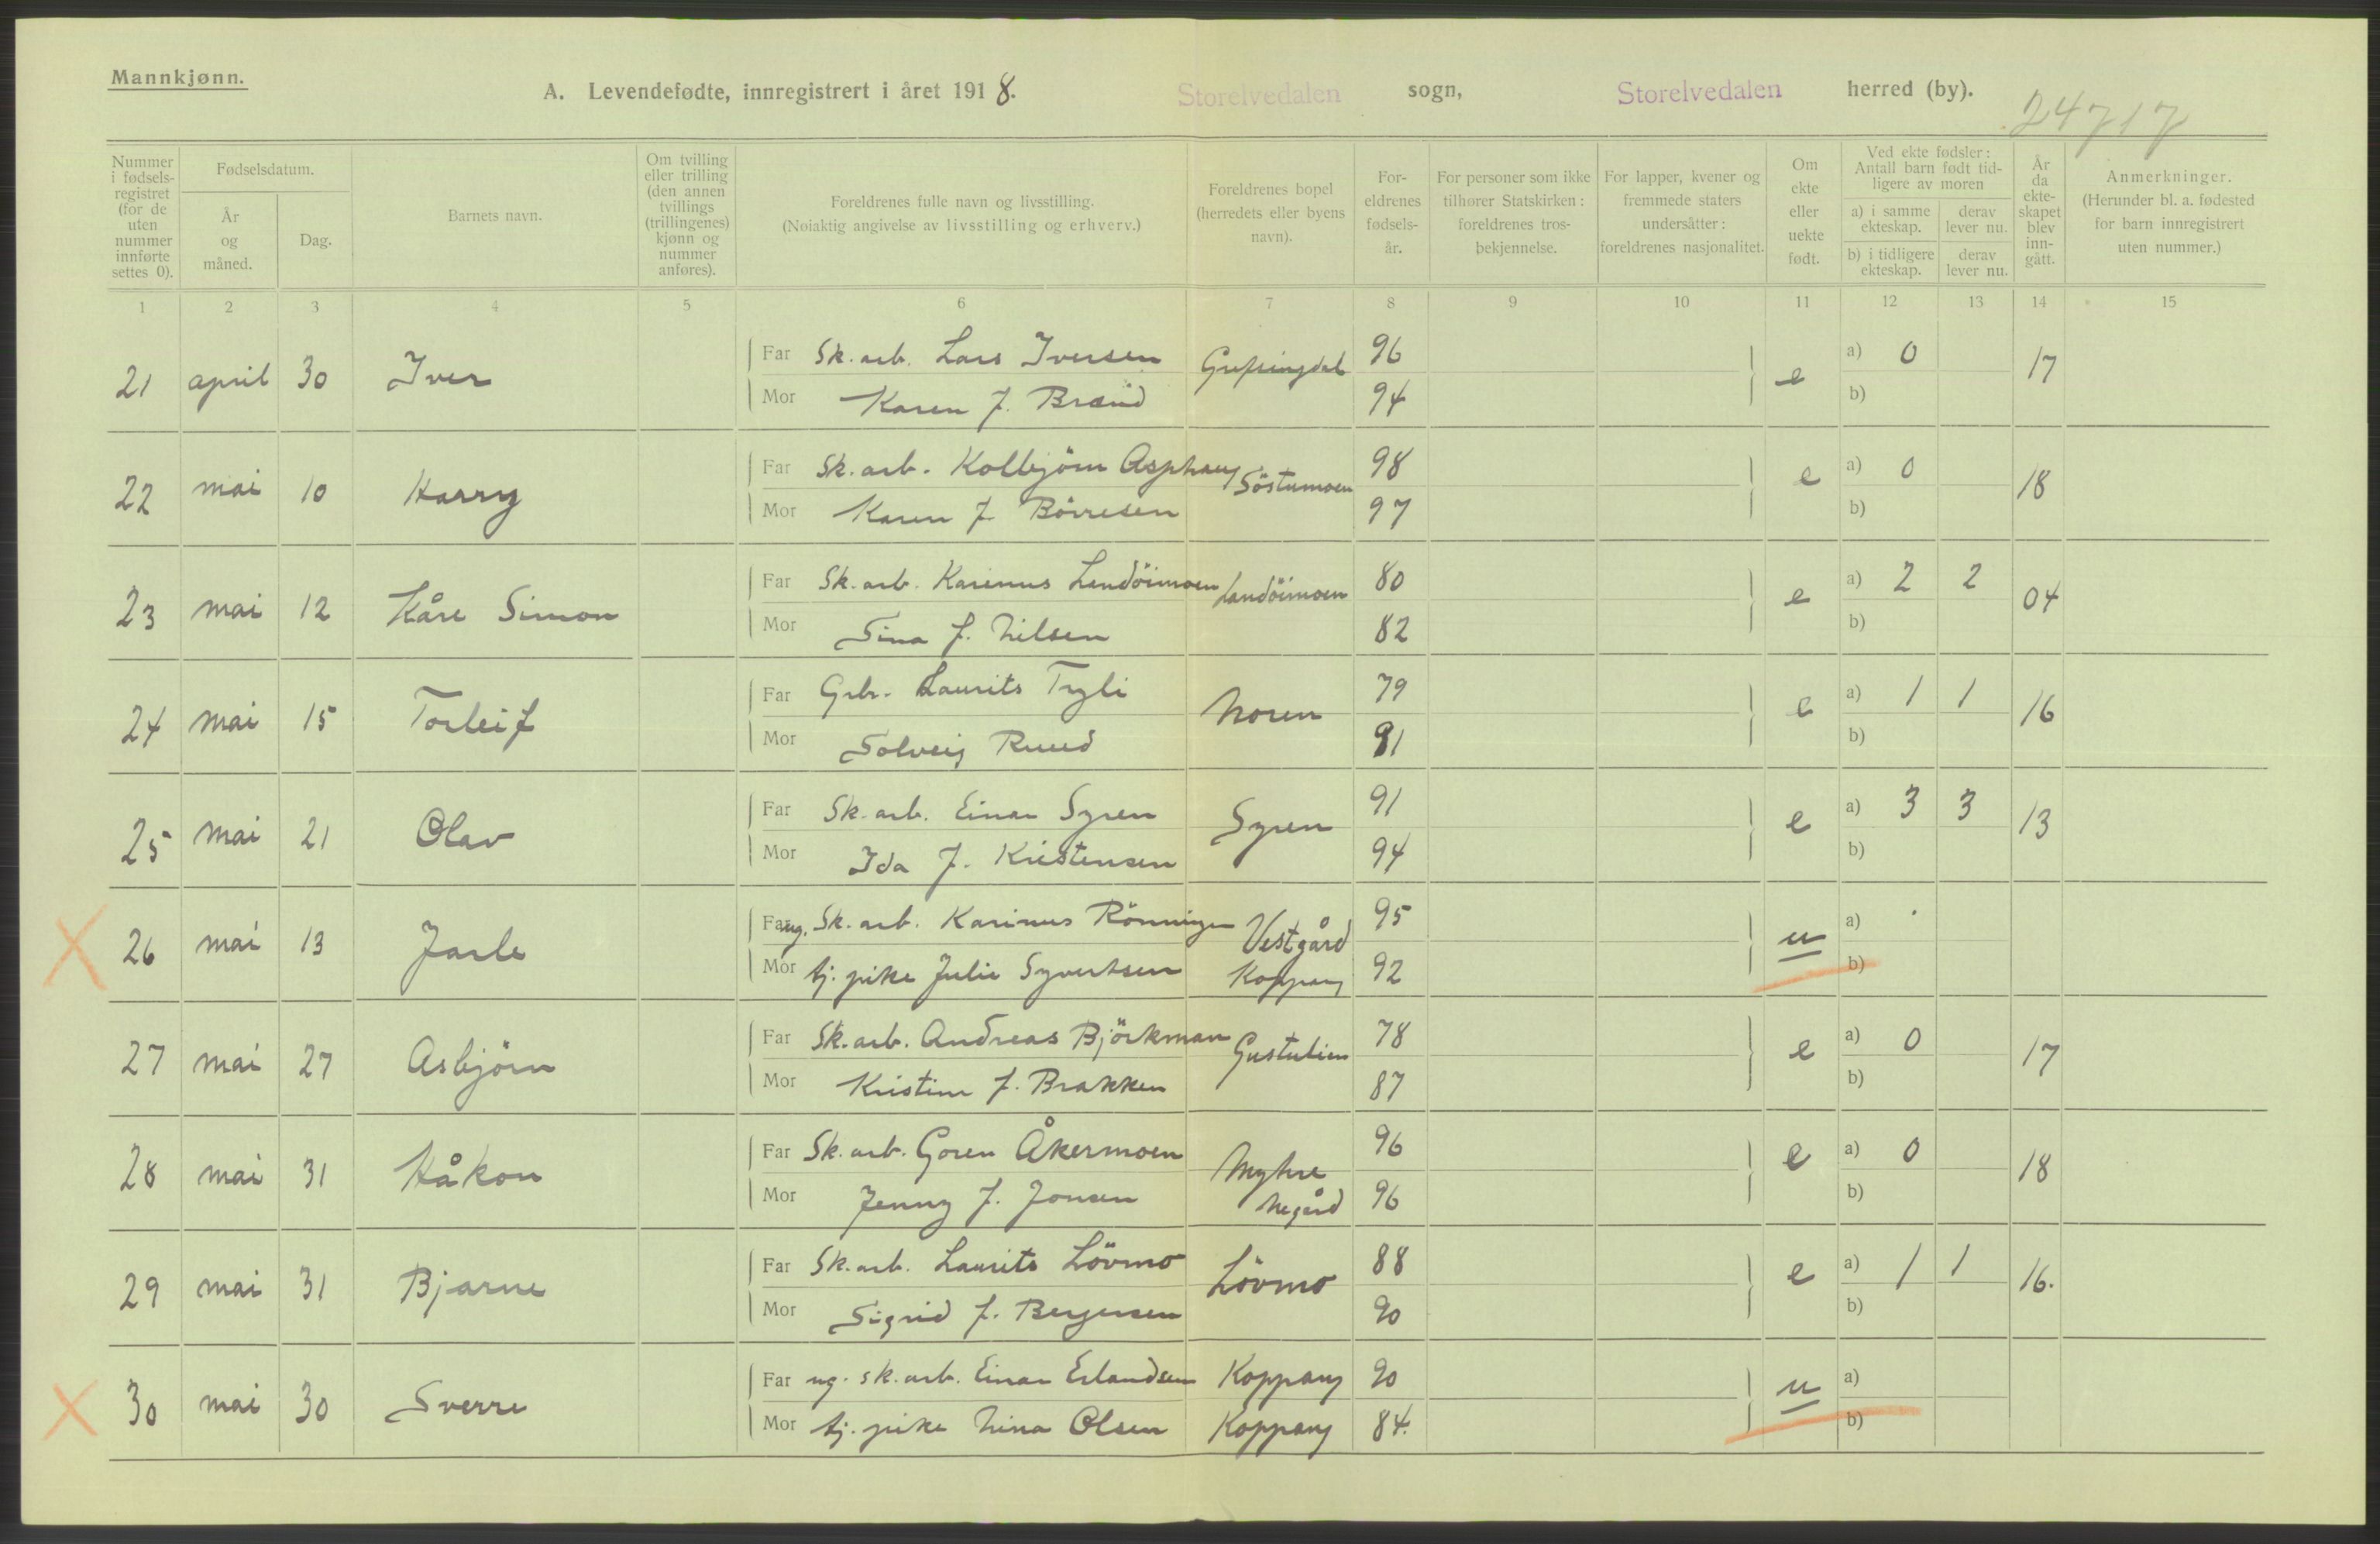 Mannkjønn.
A. Levendefødte, innregistrert i året 1918. Storelvedalen sogn, Storelvedalen herred (by).
24717
Nummer i fødsels-registret (for de uten nummer innførte settes 0).
Fødselsdatum.
År og måned.
Dag.
Barnets navn.
Om tvilling eller trilling (den annen tvillings (trillingenes) kjønn og nummer anføres).
Foreldrenes fulle navn og livsstilling.
(Nøiaktig angivelse av livsstilling og erhverv.)
Foreldrenes bopel (herredets eller byens navn).
For-eldrenes fødsels-år.
For personer som ikke tilhører Statskirken: foreldrenes tros-bekjennelse.
For lapper, kvener og fremmede staters undersåtter: foreldrenes nasjonalitet.
Om ekte eller uekte født.
Ved ekte fødsler: Antall barn født tid-ligere av moren
a) i samme ekteskap.
derav lever nu.
b) i tidligere ekteskap.
derav lever nu.
År da ekte-skapet blev inn-gått.
Anmerkninger.
(Herunder bl. a. fødested for barn innregistrert uten nummer.)
1 2 3 4 5 6 7 8 9 10 11 12 13 14 15
21 april 30 Iver
Far Sk. arb. Lars Iversen 96
Mor Karen f. Brænd 94
e a) 0 b) 17
22 mai 10 Harry
Far Sk. arb. Kolbjörn Asphaug Söstumoen 98
Mor Karen f. Börresen 97
e a) 0 b) 18
23 mai 12 Kåre Simon
Far Sk. arb. Karenus Landöimoen Landöimoen 80
Mor Sina f. Nilsen 82
e a) 2 2 b) 04
24 mai 15 Torleif
Far Grbr. Laurits Tryli Noren 79
Mor Solveig Ruud 91
e a) 1 1 b) 16
25 mai 21 Olav
Far Sk. arb. Einar Syren Syren 91
Mor Ida f. Kristensen 94
e a) 3 3 b) 13
26 mai 13 Jarle
Far ug. Sk. arb. Karinus Rönningen Vestgård 95
Mor tj. pike Julie Syvertsen Koppang 92
u a) b)
27 mai 27 Asbjörn
Far Sk. arb. Andreas Björkman Gustulien 78
Mor Kristine f. Brakken 87
e a) 0 b) 17
28 mai 31 Håkon
Far Sk. arb. Goren Åkermoen Myhre 96
Mor Jenny f. Jonsen Negård 96
e a) 0 b) 18
29 mai 31 Bjarne
Far Sk. arb. Laurits Lövmo Lövmo 88
Mor Sigrid f. Bergersen 90
e a) 1 1 b) 16.
30 mai 30 Sverre
Far ug. sk. arb. Einar Erlandsen Koppang 90
Mor tj. pike Nina Olsen Koppang 84.
u a) b)